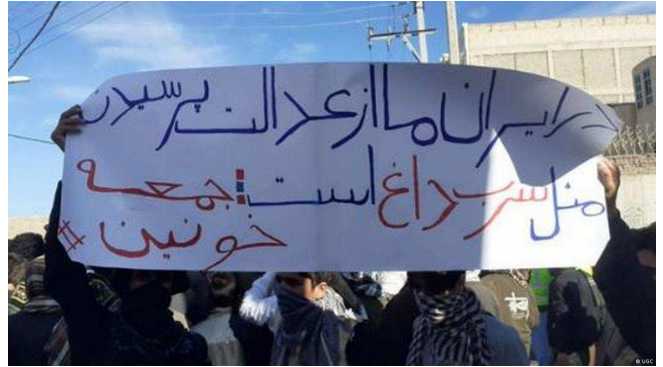 در ایران ما از عدالت پرسیدن
مثل سرب داغ است: جمعه
خونین#
© UGC